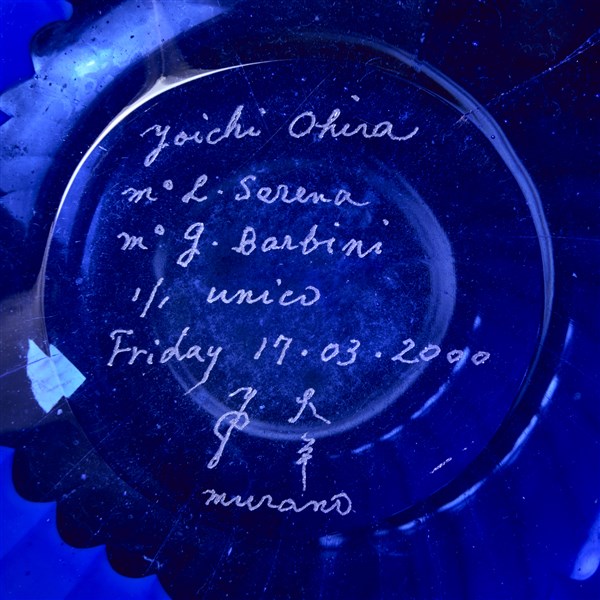 Yoichi Ohira
m° L. Serena
m° G. Barbini
1/1 unico
Friday 17.03.2000
murano